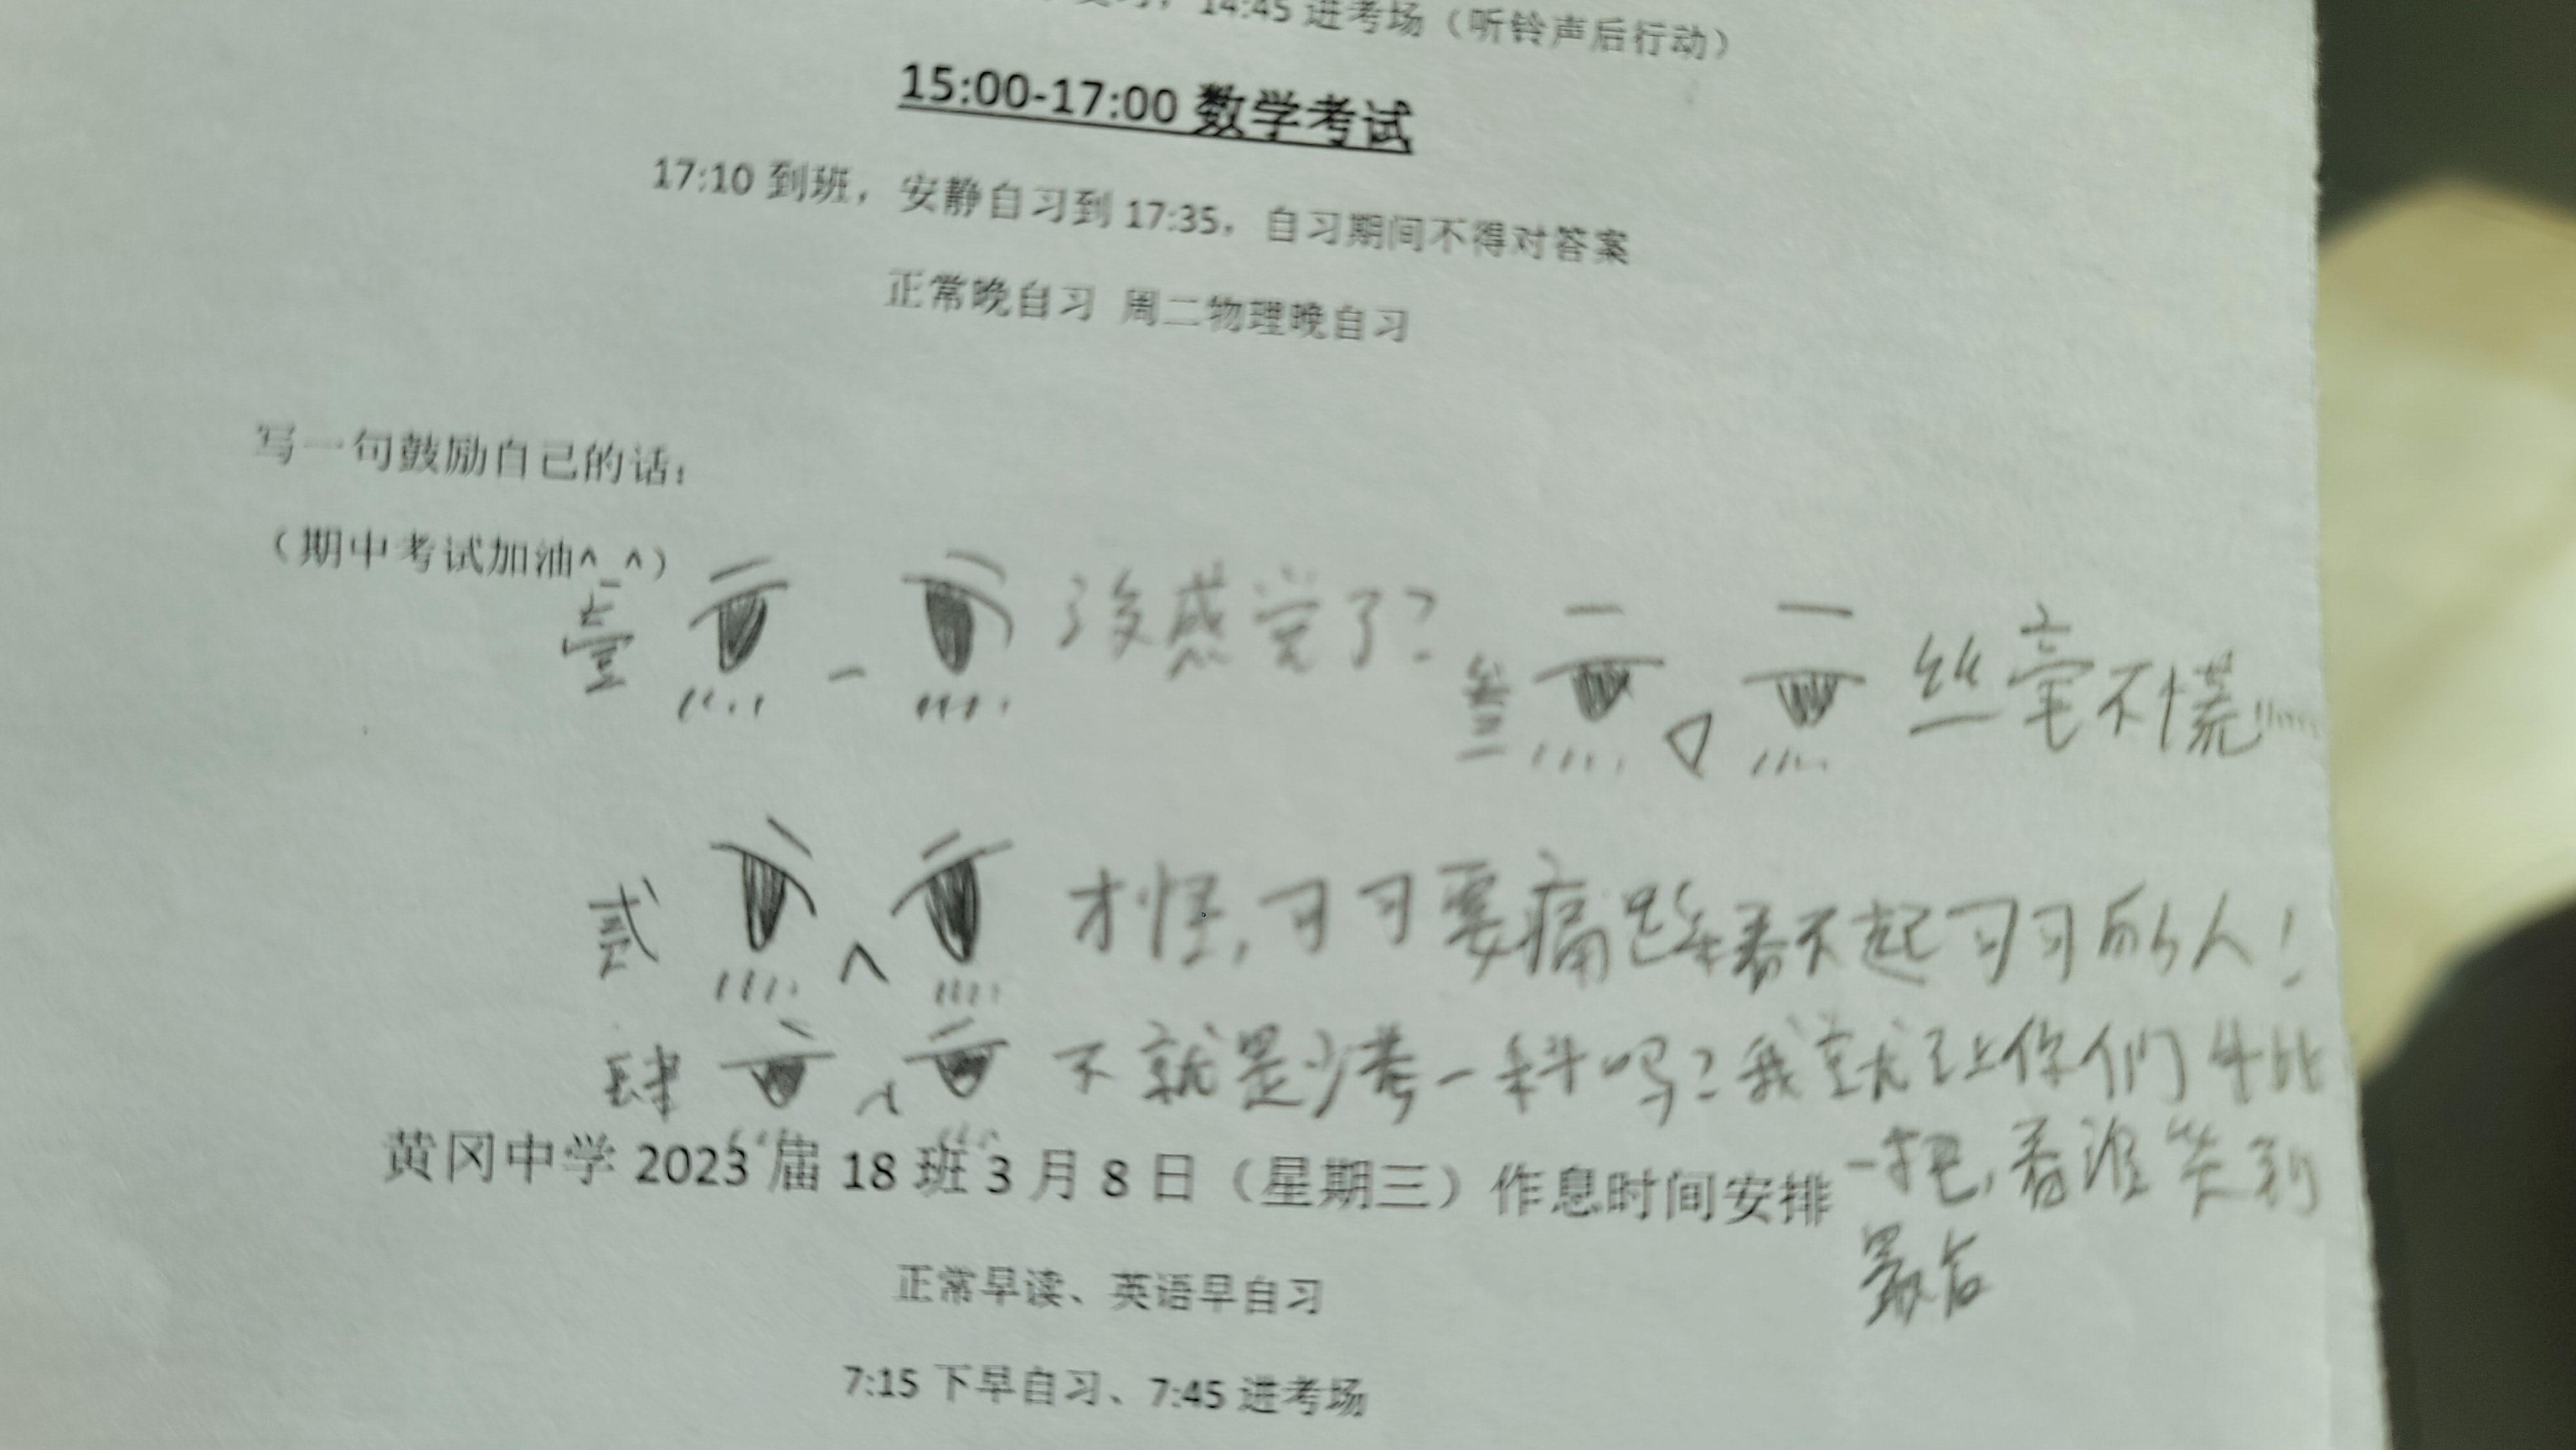 14:45 进考场（听铃声后行动）
15:00-17:00 数学考试
17:10 到班，安静自习到 17:35，自习期间不得对答案
正常晚自习 周二物理晚自习
写一句鼓励自己的话：
（期中考试加油^_^）
壹 没感觉了？
叁 丝毫不慌……
贰 才怪，习习要痛
看不起习习的人！
肆 不就是少考一科吗？我就让你们
一把，看谁笑到
最后
黄冈中学 2023 届 18 班 3 月 8 日（星期三）作息时间安排
正常早读、英语早自习
7:15 下早自习、7:45 进考场